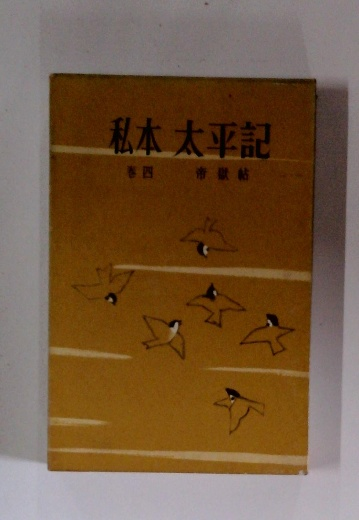 私本 太平記
巻四 帝獄帖